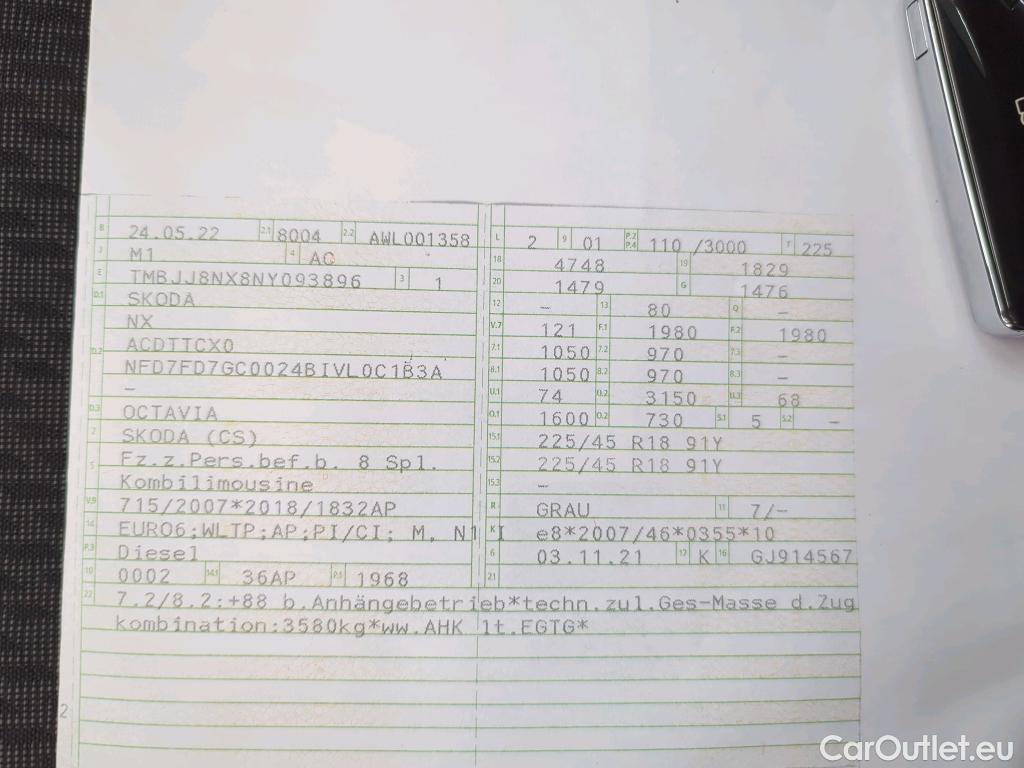 B 24.05.22 2.1 8004 2.2 AWL001358
J M1 4 AC
E TMBJJ8NX8NY093896 3 1
D.1 SKODA
NX
D.2 ACDTTCX0
NFD7FD7GC0024BIVL0C1B3A
–
D.3 OCTAVIA
2 SKODA (CS)
5 Fz.z.Pers.bef.b. 8 Spl.
Kombilimousine
V.9 715/2007*2018/1832AP
14 EURO6;WLTP;AP;PI/CI; M, N1 I
P.3 Diesel
10 0002 14.1 36AP P.1 1968
L 2 9 01 P.2 P.4 110 /3000 T 225
18 4748 19 1829
20 1479 G 1476
12 – 13 80 Q –
V.7 121 F.1 1980 F.2 1980
7.1 1050 7.2 970 7.3 –
8.1 1050 8.2 970 8.3 –
U.1 74 U.2 3150 U.3 68
O.1 1600 O.2 730 S.1 5 S.2 –
15.1 225/45 R18 91Y
15.2 225/45 R18 91Y
15.3 –
R GRAU 11 7/–
K e8*2007/46*0355*10
6 03.11.21 17 K 16 GJ914567
21
22 7.2/8.2:+88 b.Anhängebetrieb*techn.zul.Ges-Masse d.Zug
kombination:3580kg*ww.AHK lt.EGTG*
2
CarOutlet.eu